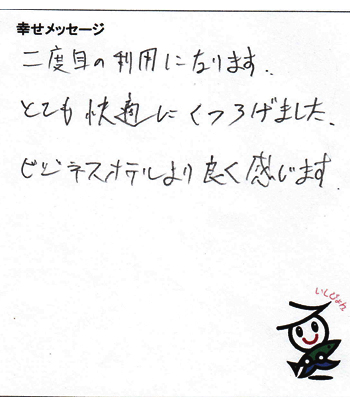 幸せメッセージ
二度目の利用になります.
とても快適にくつろげました.
ビジネスホテルより良く感じます.
いしぴょん